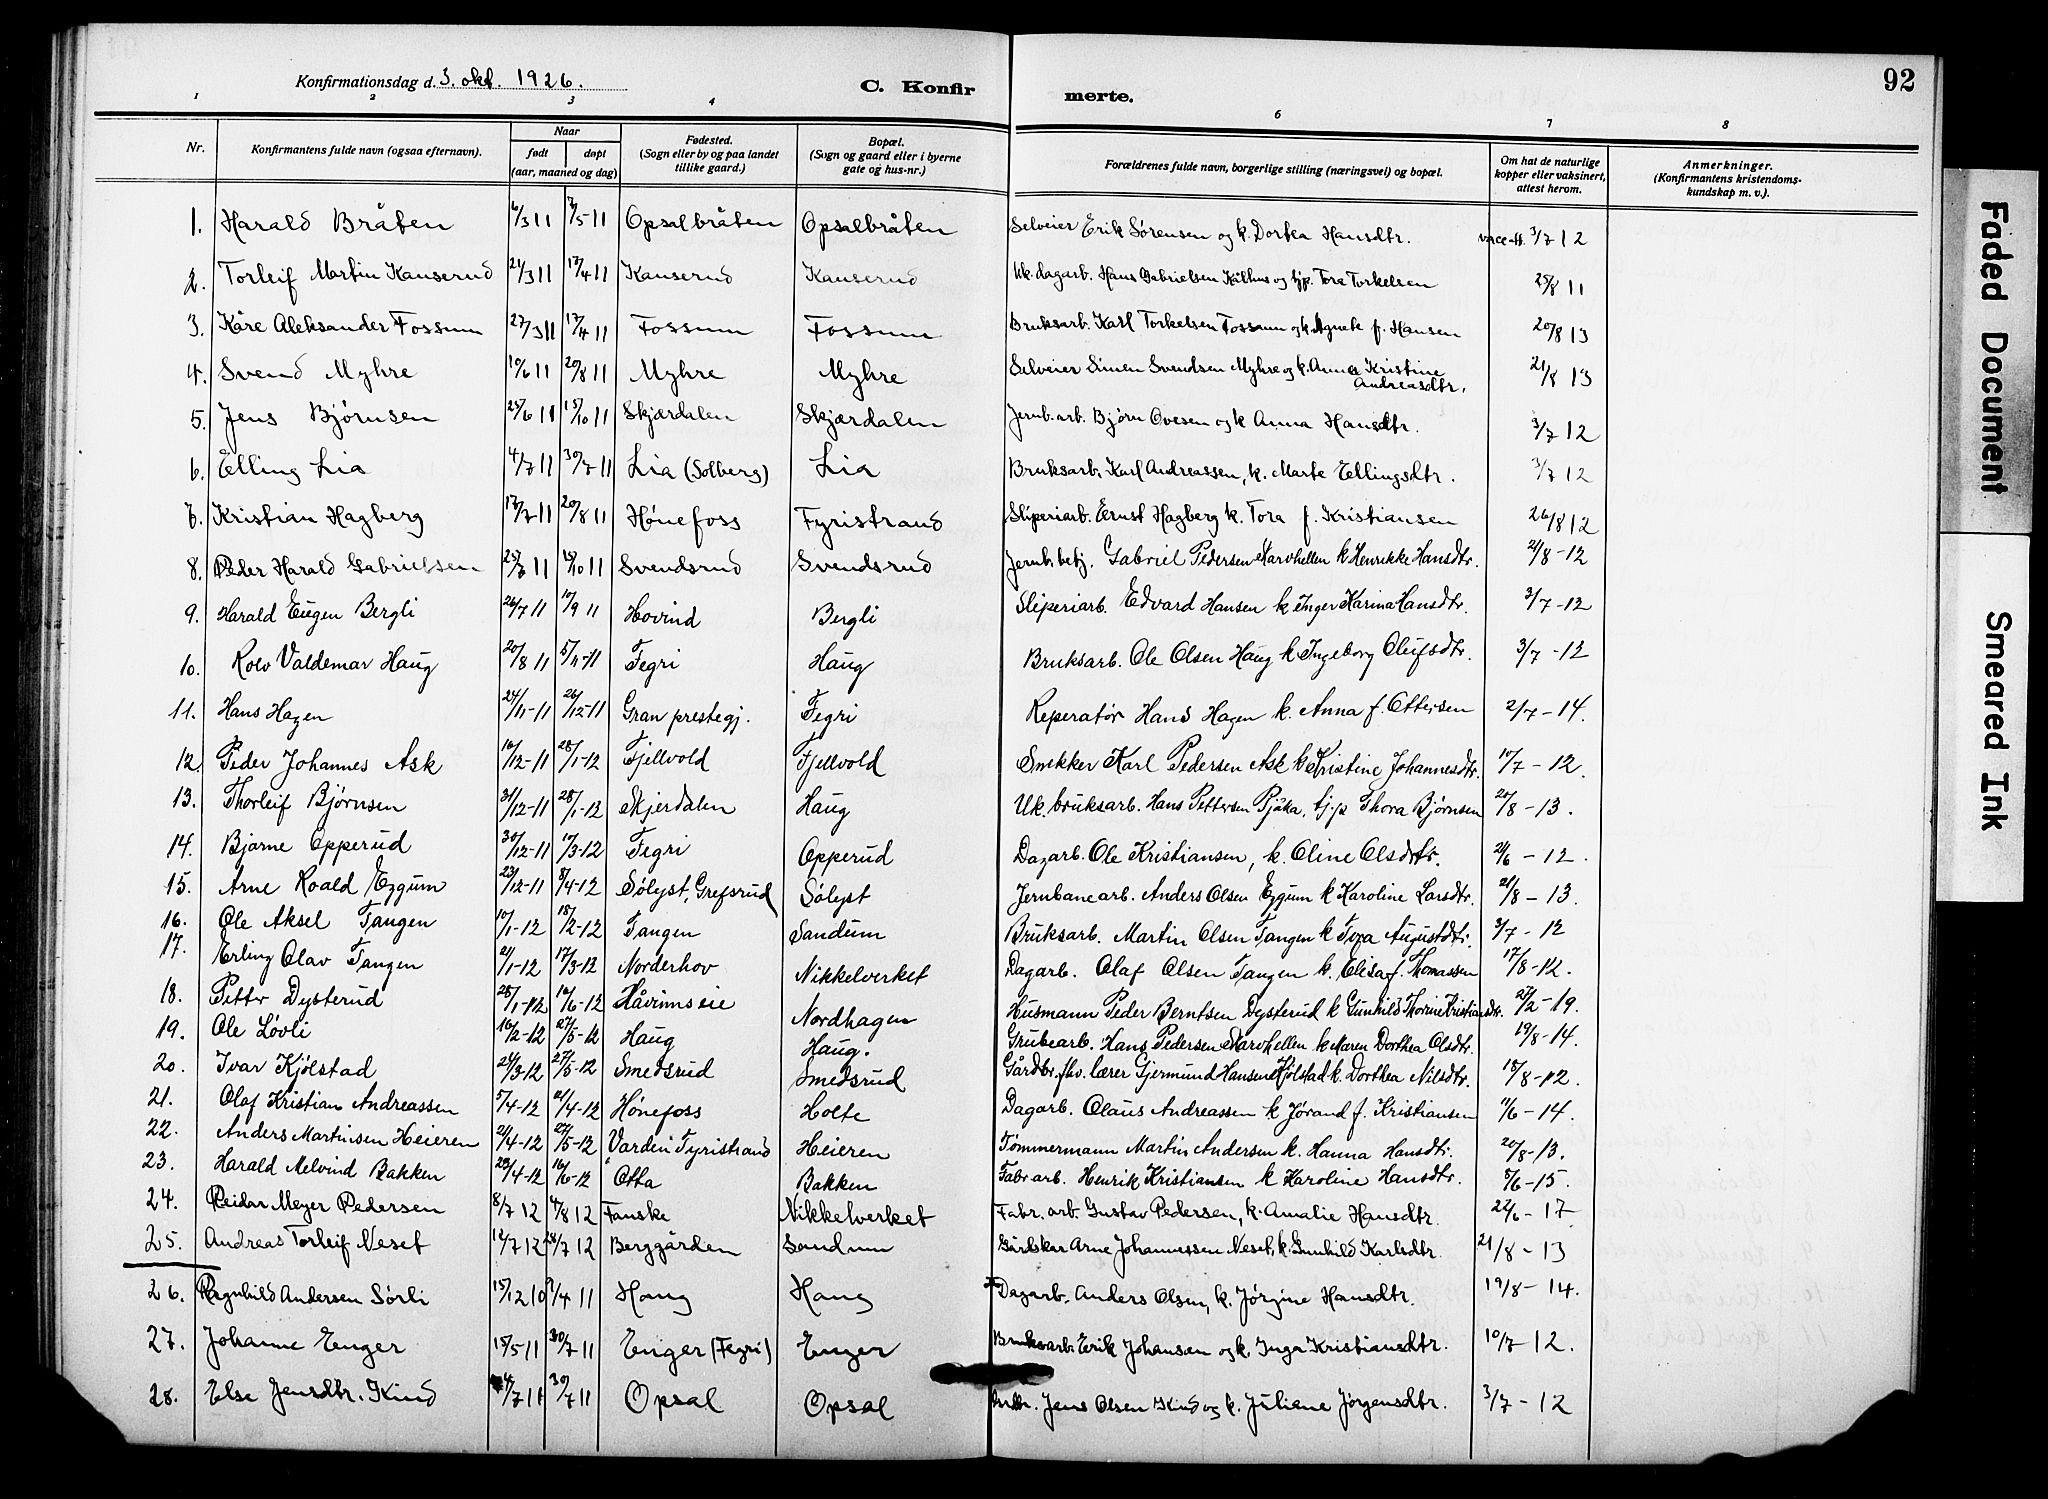 Konfirmationsdag d. 3. okt. 1926.
C. Konfir merte.
92
1 2 3 4 6 7 8
Nr. Konfirmantens fulde navn (ogsaa efternavn). Naar født døpt (aar, maaned og dag) Fødested. (Sogn eller by og paa landet tillike gaard.) Bopæl. (Sogn og gaard eller i byerne gate og hus-nr.) Forældrenes fulde navn, borgerlige stilling (næringsvei) og bopæl. Om hat de naturlige kopper eller vaksinert, attest herom. Anmerkninger. (Konfirmantens kristendomskundskap m. v.).
1. Harald Bråten 6/3 11 7/5-11 Opsalbråten Opsalbråten Selveier Erik Sørensen og k. Dortea Hansdtr. 3/7 12
2. Torleif Martin Kanserud 21/3 11 17/4 11 Kanserud Kanserud Uk. dagarb. Hans Gabrielsen og tjp. Tora Torkelsen 25/8 11
3. Kåre Aleksander Fossum 27/3 11 17/4 11 Fossum Fossum Bruksarb. Karl Torkelsen Fossum og k. Agnete f. Hansen 20/8 13
4. Svend Myhre 10/6 11 20/8 11 Myhre Myhre Selveier Simen Svendsen Myhre og k. Anna Kristine Andreasdtr. 21/8 13
5. Jens Bjørnsen 25/6 11 15/10 11 Skjærdalen Skjærdalen Jernb.arb. Bjørn Ovesen og k Anna Hansdtr. 3/7 12
6. Elling Lia 4/7 11 30/7 11 Lia (Solberg) Lia Bruksarb. Karl Andreassen, k. Marte Ellingsdtr. 3/7 12
7. Kristian Hagberg 17/7-11 20/8 11 Hønefoss Fyristrand Sliperiarb. Ernst Hagberg k. Tora f. Kristiansen 26/8 12
8. Peder Harald Gabrielsen 25/7 11 15/10 11 Svendsrud Svendsrud Jernb. betj. Gabriel Pedersen Karvhellen k Henrikke Hansdtr. 21/8-12
9. Harald Eugen Bergli 26/7 11 17/9 11 Hovind Bergli Sliperiarb. Edvard Hansen k Inger Karina Hansdtr. 3/7-12
10. Rolv Valdemar Haug 20/8 11 5/11-11 Fegri Haug Bruksarb. Ole Olsen Haug k Ingeborg Olufsdtr. 3/7-12
11. Hans Hagen 24/11-11 26/12-11 Gran prestegj. Fegri Reperatør Hans Hagen k. Anna f. Ottersen 2/7-14.
12. Peder Johannes Ask 16/12-11 28/1-12 Fjellvold Fjellvold Snekker Karl Pedersen Ask k Kristine Johannesdtr. 10/7-12.
13. Thorleif Bjørnsen 31/12-11 28/1-12 Skjerdalen Haug Uk. bruksarb. Hans Pettersen Pjåka, tj.p Thora Bjørnsen 20/8-13.
14. Bjarne Opperud 30/12-11 10/3-12 Fegri Opperud Dagarb. Ole Kristiansen, k. Oline Olsdtr. 21/6-12.
15. Arne Roald Eggum 23/12-11 8/4-12 Sølyst, Grefsrud Sølyst Jernbanearb. Anders Olsen Eggum k Karoline Larsdtr. 21/8-13.
16. Ole Aksel Tangen 10/1-12 18/2-12 Tangen Sandum Bruksarb. Martin Olsen Tangen k Tora Augustdtr. 3/7-12
17. Erling Olav Tangen 21/1-12 17/3-12 Norderhov Nikkelverket Dagarb. Olaf Olsen Tangen k. Elisa f. Thomassen 17/8-12.
18. Petter Dysterud 28/1-12 16/6-12 Håvimseie Nordhagen Husmann Peder Berntsen Dysterud k Gunhild Thorine Kristiansdtr. 27/2-19.
19. Ole Løvli 16/2-12 27/5-12 Haug Haug. Grubearb. Hans Pedersen Karvhellen k Maren Dorthea Olsdtr. 19/8-14.
20. Ivar Kjølstad 24/3-12 27/5-12 Smedsrud Smedsrud Gårdbr., fhv. lærer Gjermund Hansen Kjølstad k. Dorthea Nilsdtr. 15/8-12.
21. Olaf Kristian Andreassen 5/4-12 21/4-12 Hønefoss Holte Dagarb. Olaus Andreassen k Jørand f. Kristiansen 11/6-14.
22. Anders Martinsen Heieren 21/4-12 27/5-12 Varden Tyristrand Heieren Tømmermann Martin Andersen k. Hanna Hansdtr. 20/8-13.
23. Harald Melvind Bakken 28/4-12 16/6-12 Otta Bakken Fabr arb. Henrik Kristiansen k Karoline Hansdtr. 5/6-15.
24. Reidar Meyer Pedersen 8/7 12 4/8 12 Fauske Nikkelverket Fabr. arb. Gustav Pedersen, k. Amalie Hansdtr. 22/6-17
25. Andreas Torleif Neset 12/7 12 28/7 12 Berggården Sandum Gårdskar Arne Johannessen Neset, k. Gunhild Karlsdtr. 21/8-13
26. Ragnhild Andersen Sörli 15/12 10 9/4 11 Haug Haug Dagarb. Anders Olsen, k. Jørgine Hansdtr. 19/8-14.
27. Johanne Enger 15/5 11 30/7 11 Enger (Fegri) Enger Bruksarb. Erik Johansen og k. Inga Kristiansdtr. 10/7-12.
28. Else Jensdtr. Kind 4/7 11 30/7 11 Opsal Opsal Jens Olsen Kind og k. Juliane Jørgensdtr. 3/7-12
Faded Document
Smeared Ink